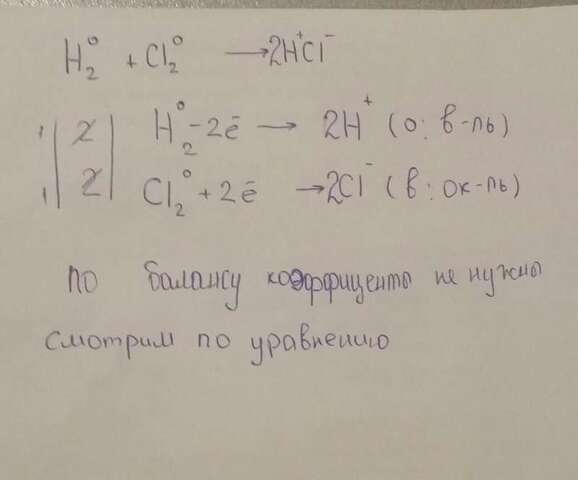 H₂⁰ + Cl₂⁰ → 2H⁺Cl⁻
1 | 2 | H₂⁰ - 2ē → 2H⁺ (о: в-ль)
1 | 2 | Cl₂⁰ + 2ē → 2Cl⁻ (в: ок-ль)
по балансу коэффиценты не нужны
смотрим по уравнению